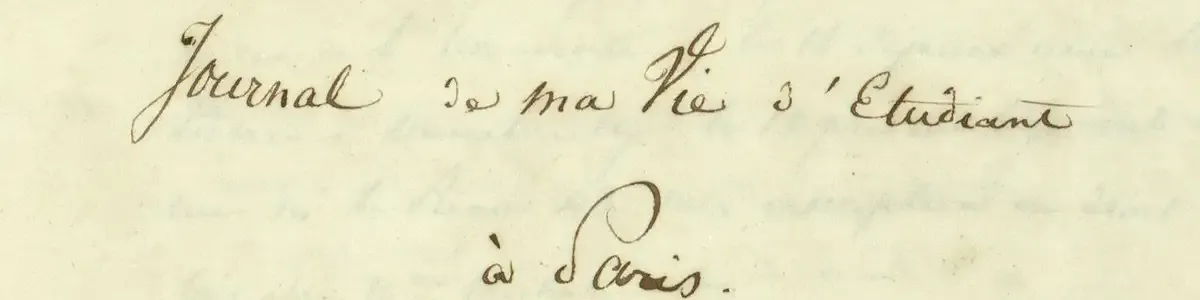 Journal de ma Vie d'Etudiant
à Paris.